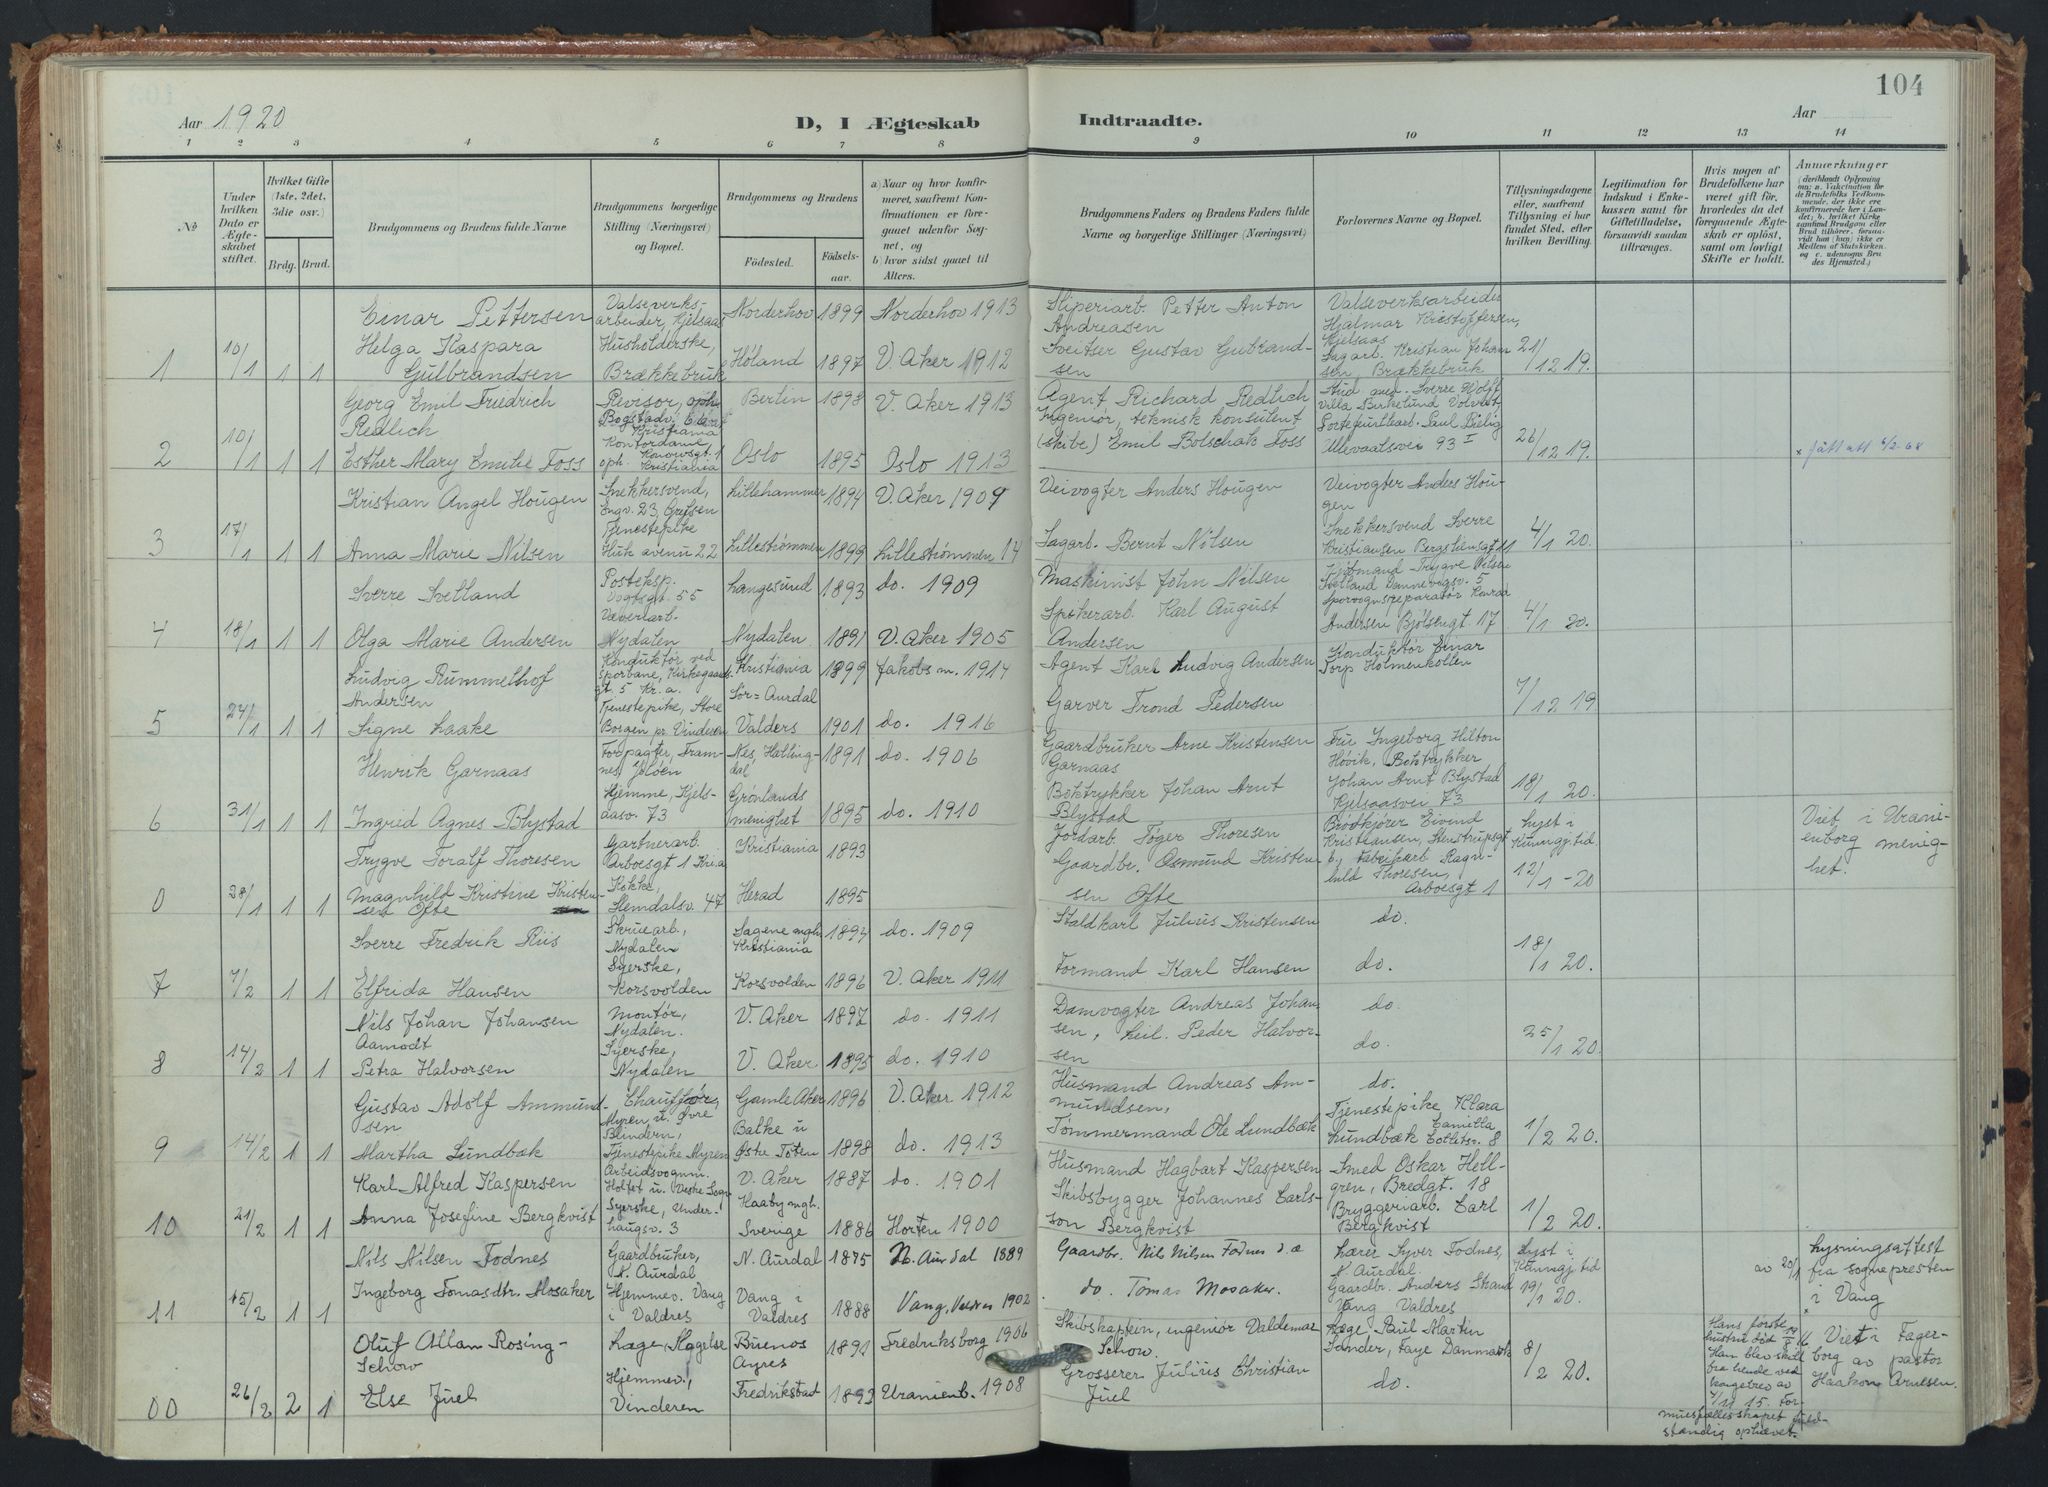 104
Aar 1920
D, I Ægteskab Indtraadte.
Aar
1 2 3 4 5 6 7 8 9 10 11 12 13 14
№
Under hvilken Dato er Ægteskabet stiftet.
Hvilket Gifte (1ste, 2det, 3die osv.)
Brdg. Brud.
Brudgommens og Brudens fulde Navne
Brudgommens borgerlige Stilling (Næringsvei) og Bopæl.
Brudgommens og Brudens
Födested. Födselsaar.
a) Naar og hvor konfirmeret, saafremt Konfirmationen er foregaaet udenfor Sognet, og
b) hvor sidst gaaet til Alters.
Brudgommens Faders og Brudens Faders fulde Navne og borgerlige Stillinger (Næringsvei)
Forlovernes Navne og Bopæl.
Tillysningsdagene eller, saafremt Tillysning ei har fundet Sted, efter hvilken Bevilling.
Legitimation for Indskud i Enkekassen samt for Giftetilladelse, forsaavidt saadan tiltrænges.
Hvis nogen af Brudefolkene har været gift för, hvorledes da det foregaaende Ægteskab er oplöst, samt om lovligt Skifte er holdt.
Anmærkninger
(deriblandt Oplysning om: a. Vakcination for de Brudefolks Vedkommende, der ikke ere konfirmerede her i Landet; b. hvilket Kirkesamfund Brudgom eller Brud tilhörer, forsaavidt han (hun) ikke er Medlem af Statskirken, og c. udensogns Brudes Hjemsted.)
1 10/1 1 1
Einar Pettersen
Valseverksarbeider, Kjelsaas
Norderhov 1899 Norderhov 1913
Sliperiarb. Petter Anton Andreasen
Valseverksarbeider Hjalmar Kristoffersen, Kjelsaas
Helga Kaspara Gulbrandsen
Husholderske, Brækkebruk
Høland 1897 V. Aker 1912
Sveitser Gustav Gulbrandsen
Sagarb. Kristian Johansen, Brækkebruk
21/12 19.
2 10/1 1 1
Georg Emil Friedrich Redlich
Revisor, oph. Bogstadv. Kristiania
Berlin 1898 V. Aker 1913
Agent Richard Redlich
Stud. med. Sverre Wolff, villa Birkelund
Esther Mary Emilie Foss
Kontordame, oph. Konowsgt. 1 Kristiania
Oslo 1895 Oslo 1913
Ingeniør, teknisk konsulent (skibe) Emil Bolschak Foss
Portefeuillearb. Paul Bielig Ullevaalsvei 93 I
26/12 19.
3 17/1 1 1
Kristian Angel Hougen
Snekkersvend, Engv. 23, Grefsen
Lillehammer 1894 V. Aker 1909
Veivogter Anders Hougen
Veivogter Anders Hougen
Anna Marie Nilsen
Tjenestepike Huk avenü 22
Lillestrømmen 1899 Lillestrømmen 14
Sagarb. Bernt Nilsen
Snekkersvend Sverre Kristiansen Bergslensgt 11
4/1 20.
4 18/1 1 1
Sverre Svetland
Posteksp. Vogtsgt. 55
Langesund 1893 do. 1909
Maskinist John Nilsen
Kjøbmand Trygve Nilsen Svetland Dannevigsv. 5
Olga Marie Andersen
Væveriarb. Nydalen
Nydalen 1891 V. Aker 1905
Spøkerarb. Karl August Andersen
Sporvognsreparatør Konrad Andersen Bjølsengt. 17
4/1 20.
5 24/1 1 1
Ludvig Rummelhof Andersen
Konduktør ved Sporbane, Kirkegaardsgt 5 Kr.a.
Kristiania 1899 Jakobs m. 1914
Agent Karl Ludvig Andersen
Konduktør Einar Torp Holmenkollen
Signe Laake
Tjenestepike, Store Borgen pr. Vinderen
Sør=Aurdal Valders 1901 do. 1916
Garver Trond Pedersen
7/12 19
6 31/1 1 1
Henrik Garnaas
Forpagter, Framnes, Jeløen
Nes, Hallingdal 1891 do. 1906
Gaardbruker Arne Kristensen Garnaas
Frü Ingeborg Hilton Høvik,
Ingrid Agnes Blystad
Hjemme, Kjelsaasv. 73
Grønlands menighet 1895 do. 1910
Boktrykker Johan Arnt Blystad
Boktrykker Johan Arnt Blystad Kjelsaasvei 73
18/1 20.
0 28/1 1 1
Trygve Toralf Thoresen
Gartnerarb. Arboesgt 1 Kr.ia
Kristiania 1893
Jordarb. Tøger Thoresen
Brødkjører Eivind Kristiansen, Stenstrupsgt 6,
Lyst i Kunngj. tid
Magnhild Kristine Kristensen Ofte
Kokke, Slemdalsv. 47
Herad 1895
Gaardbr. Osmund Kristensen Ofte
Fabrikarb. Ragnhild Thoresen, Arboesgt 1
12/1 -20
Viet i Uranienborg menighet.
7 7/2 1 1
Sverre Fredrik Riis
Skruearb., Nydalen
Sagene mgh. Kristiania 1894 do. 1909
Staldkarl Julius Kristensen
do.
Elfrida Hansen
Syerske, Korsvolden
Korsvolden 1896 V. Aker 1911
Formand Karl Hansen
do.
18/1 20.
8 14/2 1 1
Nils Johan Johansen Aamodt
Montør, Nydalen.
V. Aker 1897 do. 1911
Damvogter Andreas Johansen,
do
Petra Halvorsen
Syerske, Nydalen
V. Aker 1895 do. 1910
Peder Halvorsen
do.
25/1 20.
9 14/2 1 1
Gustav Adolf Ammundsen
Chauffør, Myren u. Øvre Blindern,
Gamle Aker 1896 V. Aker 1912
Husmand Andreas Ammundsen,
do.
Martha Lundbæk
Tjenestepike Myren
Balke u Østre Toten 1898 do. 1913
Tømmermand Ole Lundbæk
Tjenestepike Klara Camilla Lundbæk Colletsv. 8
1/2 20.
10 21/2 1 1
Karl Alfred Kaspersen
Arbeidsvognm. Holtet u. Vestre Sogn
V. Aker 1887 do. 1901
Husmand Hagbart Kaspersen
Smed Oskar Hellgren, Bredgt. 18
Anna Josefine Bergkvist
Syerske, Underhaugsv. 3
Haaby mgh. Sverige 1886 Horten 1900
Skibsbygger Johannes Carlsson Bergkvist
Bryggeriarb. Carl Bergkvist
1/2 20.
11 15/2 1 1
Nils Nilsen Fodnes
Gaardbruker, N. Aurdal
N. Aurdal 1875 N. Aurdal 1889
Gaardbr. Nils Nilsen Fodnes d.æ
Lærer Syver Fodnes, N. Aurdal.
Lyst i Kunngj. tid
Ingeborg Tomasdtr. Mosaker
Hjemmev. Vang i Valdres
Vang i Valdres 1888 Vang, Valdres 1902
do. Tomas Mosaker.
Gaardbr. Anders Strand Vang Valdres
19/1 20.
Lysningsattest av 20/1 fra sognepresten i Vang
00 26/2 2 1
Oluf Allan Rosing-Schow
Læge, Slagelse
Buenos Ayres 1891 Fredriksborg 1906
Skibskaptein, ingeniør Valdemar Schow.
Læge, Paul Martin Sander, Faxe Danmark
Else Juel
Hjemmev., Vinderen
Fredrikstad 1893 Uranienb. 1908
Grosserer Julius Christian Juel
do.
8/2 20.
Hans første hustru død
Han blev skilt fra hende ved kongebrev av 4/11 15. Formuesfællesskapet fuldstændig ophævet.
Viet i Fagerborg av pastor Haakon Arnesen.